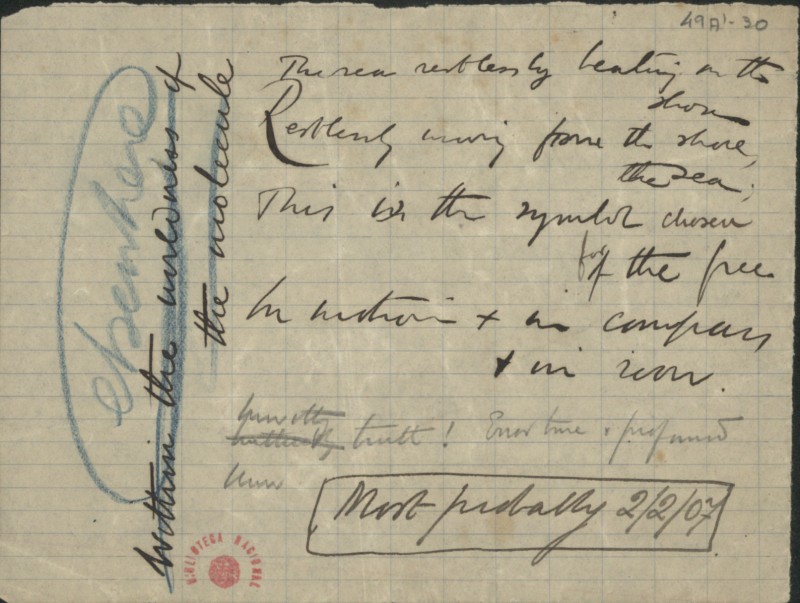 49A¹-30
The sea restlessly beating on the
shore
Restlessly moving from the shore,
the sea;
This is the symbol chosen
for
of the free
In motion + in compass
+ in
truth! & profound
Most probably 2/2/07
within the
of
the molecule
elsewhere
BIBLIOTECA NACIONAL